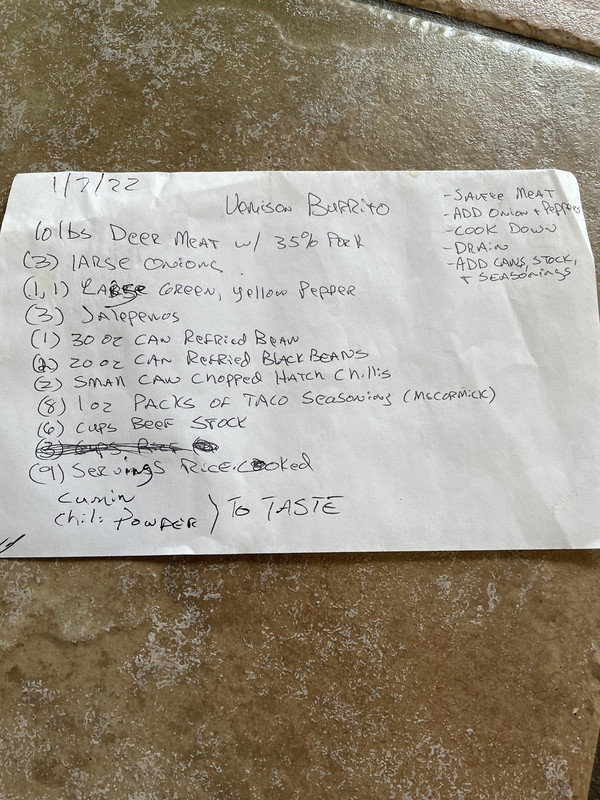 1/7/22
Venison Burrito
- SAUTEE MEAT
- ADD ONION + PEPPERS
- COOK DOWN
- DRAIN
- ADD CANS, STOCK,
+ SEASONINGS
10 lbs DEER MEAT w/ 35% PORK
(3) LARGE ONIONS
(1,1) LARGE GREEN, yellow PEPPER
(3) JALEPENOS
(1) 30 oz CAN REFRIED BEAN
(2) 20 oz CAN REFRIED BLACK BEANS
(2) SMALL CAN CHOPPED HATCH CHILLIS
(8) 1 oz PACKS OF TACO SEASONING (McCORMICK)
(6) CUPS BEEF STOCK
(3) CUPS RICE
(9) SERVINGS RICE-COOKED
Cumin
Chili POWDER } TO TASTE